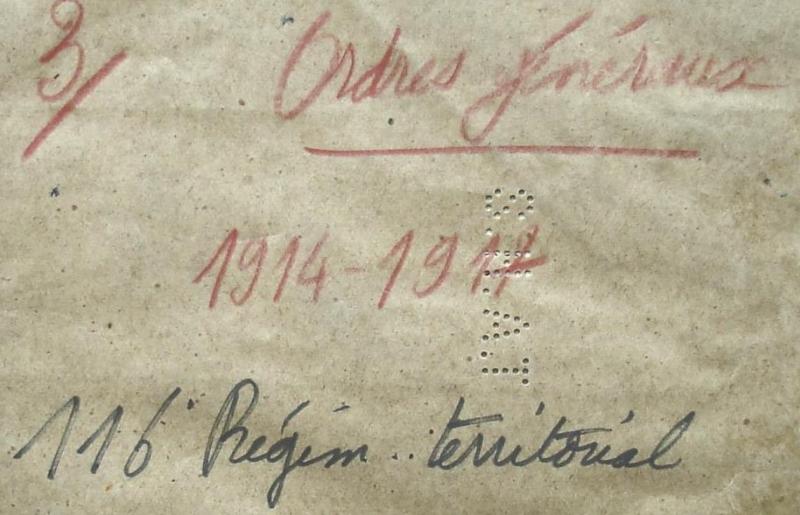 3/ Ordres généraux
1914-1917
116e Régim. territorial